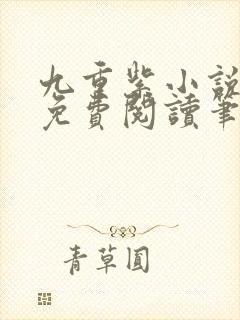 九重紫小說
免費閱讀筆
青草圓